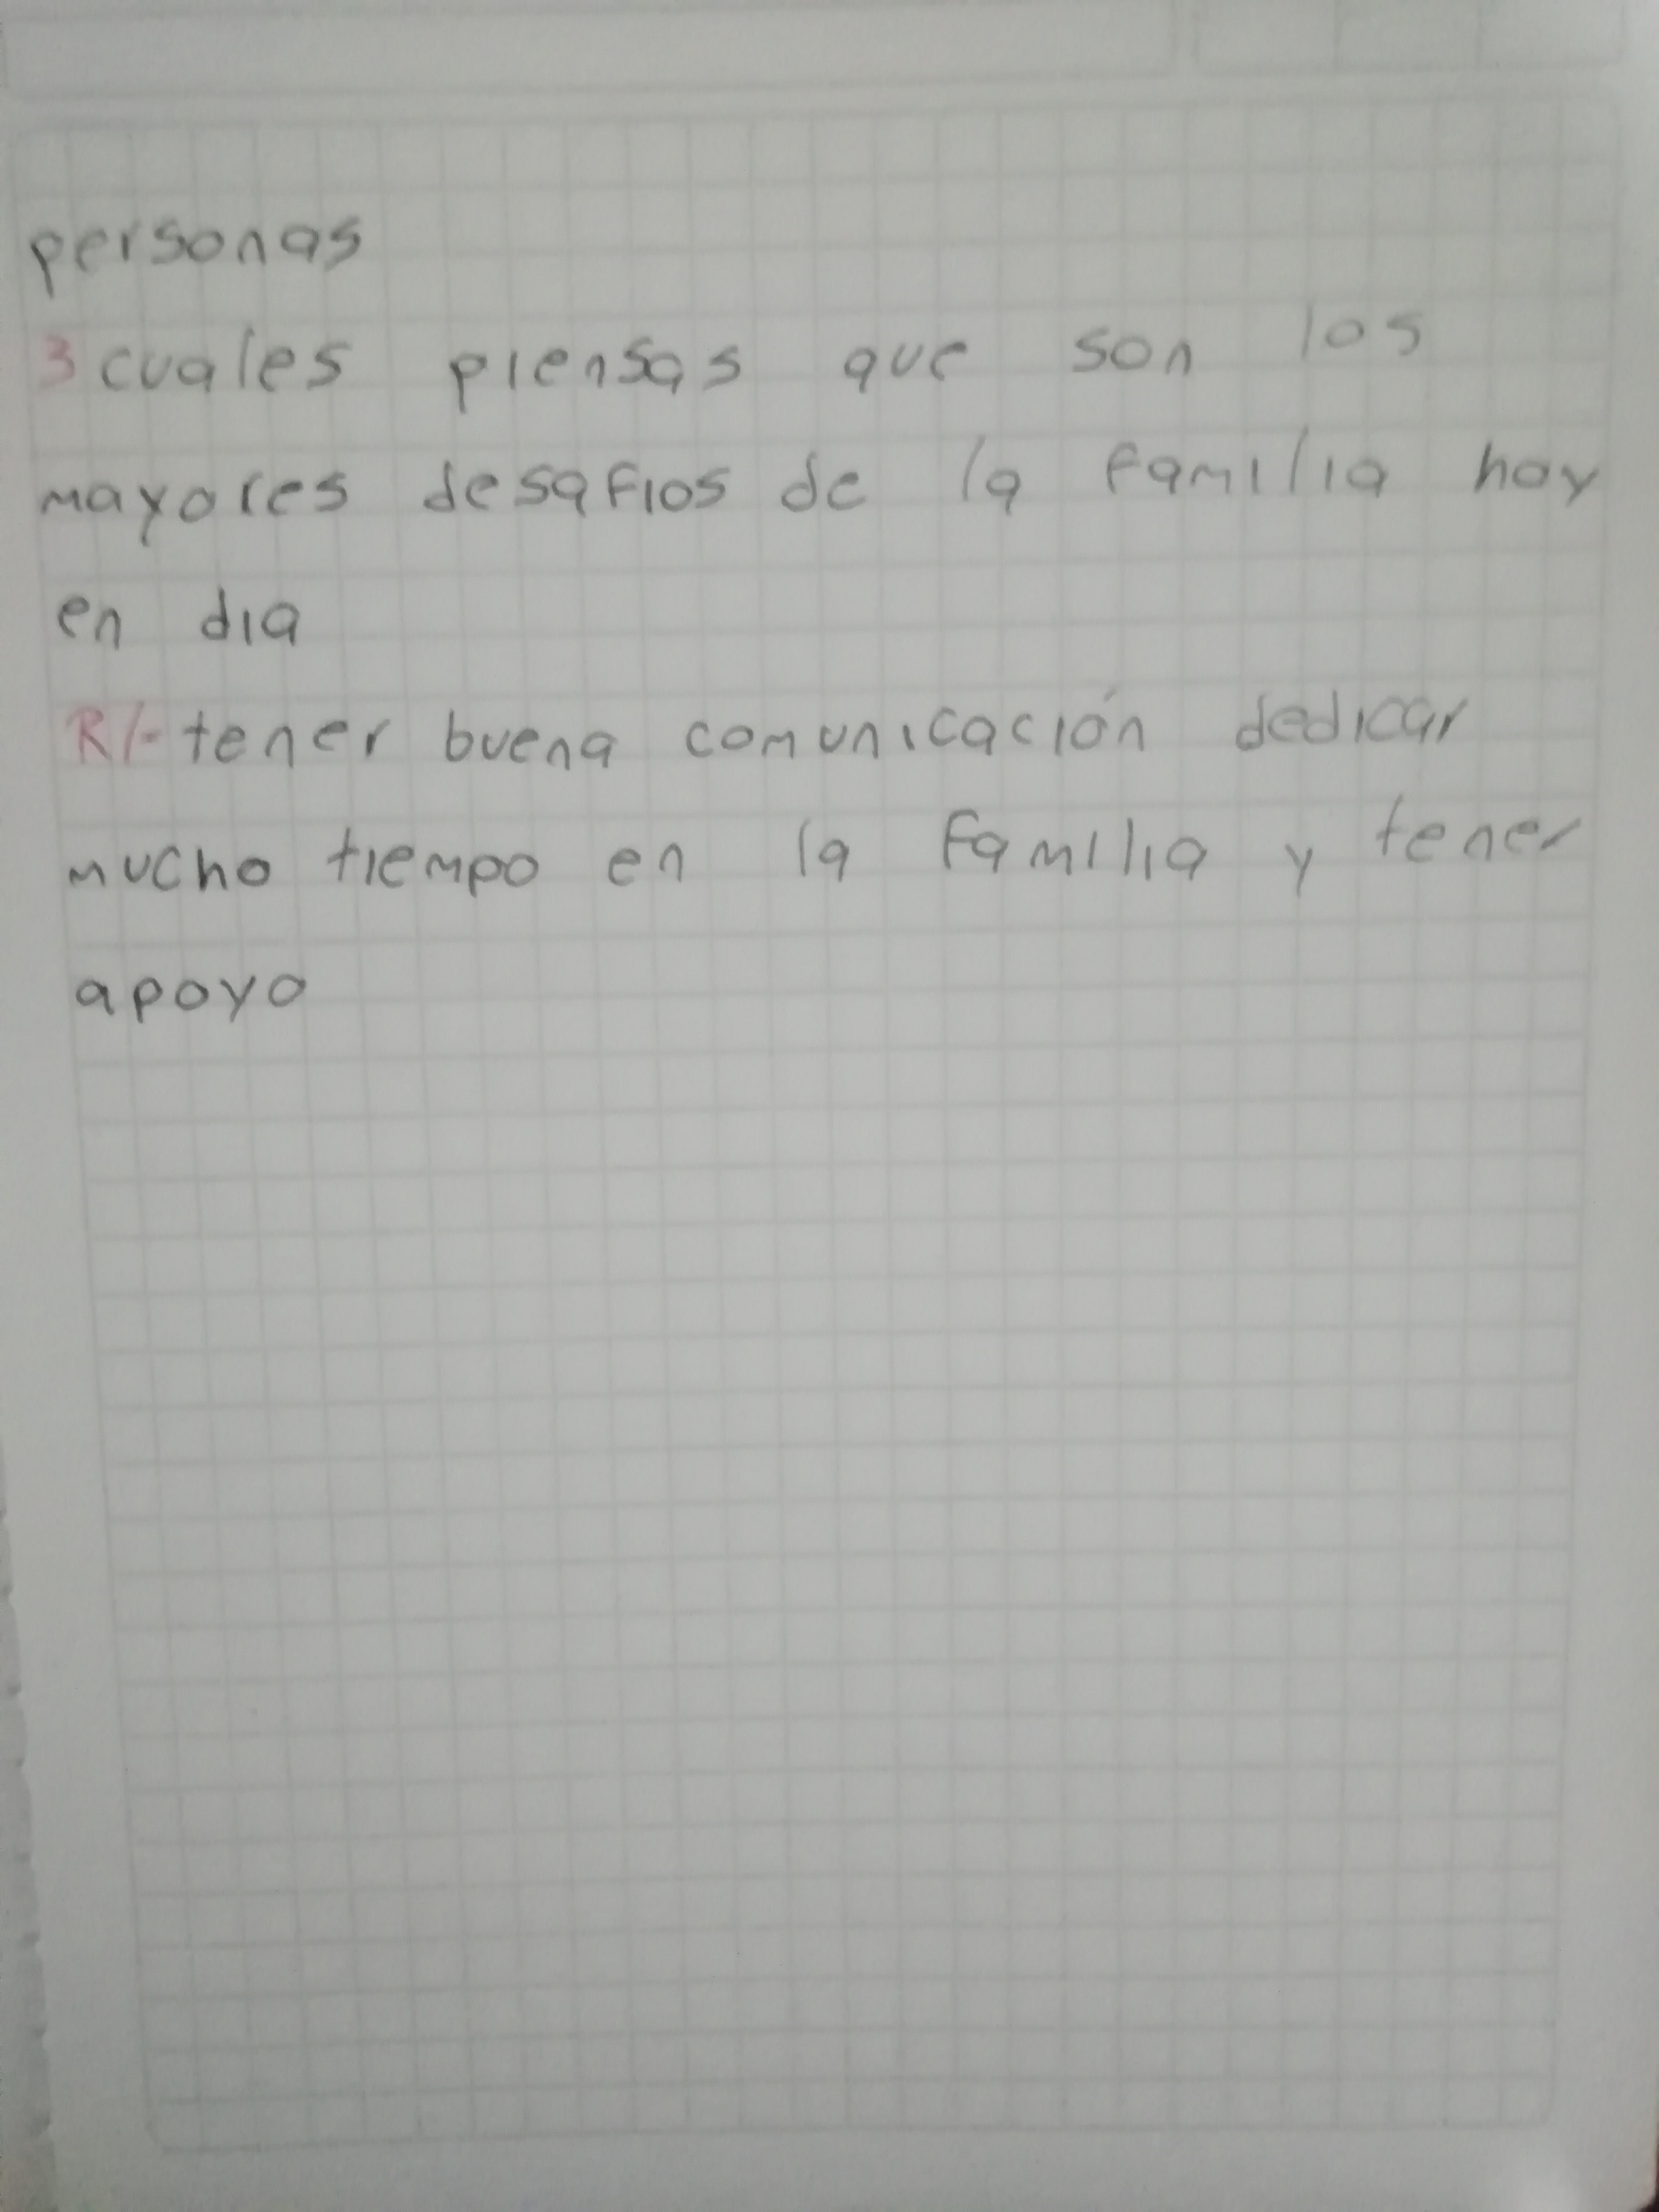 personas
3 cuales piensas que son los
mayores desafios de la familia hoy
en dia
R/- tener buena comunicación dedicar
mucho tiempo en la familia y tener
apoyo